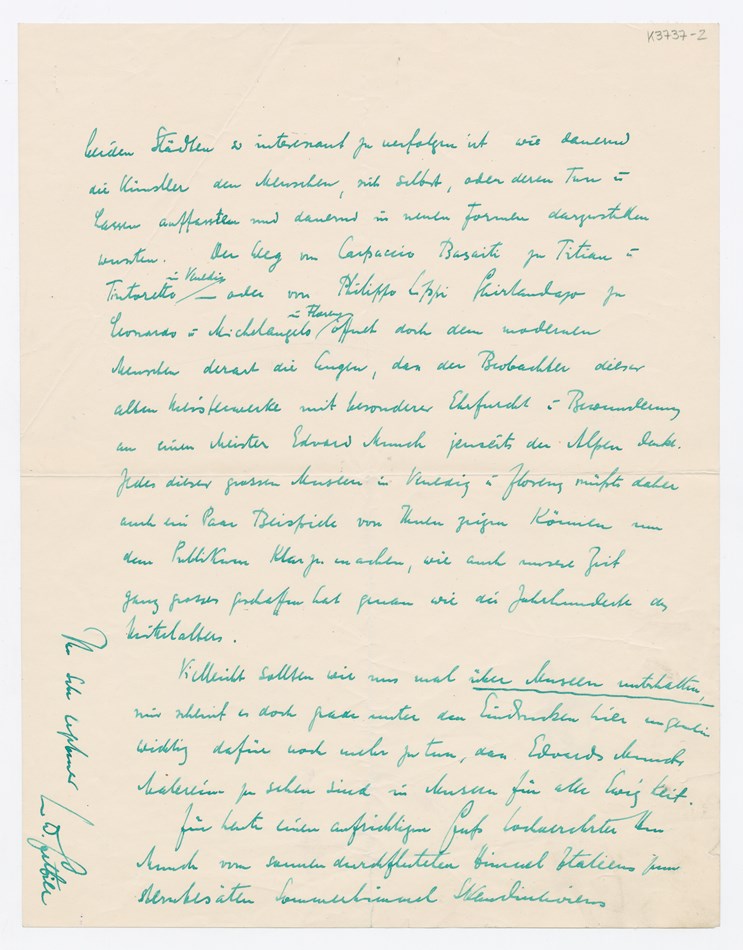 K3737-2
beiden Städten so interessant zu verfolgen ist wie dauernd
die Künstler den Menschen, sich selbst, oder deren Tun u
Lassen auffassten und dauernd in neuen Formen darzustellen
wussten. Der Weg von Carpaccio Basaiti zu Titian u
in Venedig
Tintoretto — oder von Philippo Lippi Ghirlandajo zu
in Florenz
Leonardo u Michelangelo öffnet doch dem modernen
Menschen derart die Augen, dass der Beobachter dieser
alten Meisterwerke mit besonderer Ehrfurcht u Bewunderung
an einen Meister Edvard Munch jenseits der Alpen denkt.
Jedes dieser grossen Museen in Venedig u Florenz müsste daher
auch ein Paar Beispiele von Ihnen zeigen Können um
dem Publikum Klar zu machen, wie auch unsere Zeit
ganz grosses geschaffen hat genau wie die Jahrhunderte des
Mittelalters.
Vielleicht sollten wir uns mal über Museen unterhalten,
mir scheint es doch grade unter den Eindrücken hier ungemein
wichtig dafür noch mehr zu tun, dass Edvard Munchs
Malereien zu sehen sind in Museen für alle Ewigkeit.
Für heute einen aufrichtigen Gruss hochverehrter Herr
Munch vom sonnendurchfluteten Himmel Italiens zum
sternbesäten Sommerhimmel Skandinaviens
Ihr sehr ergebener